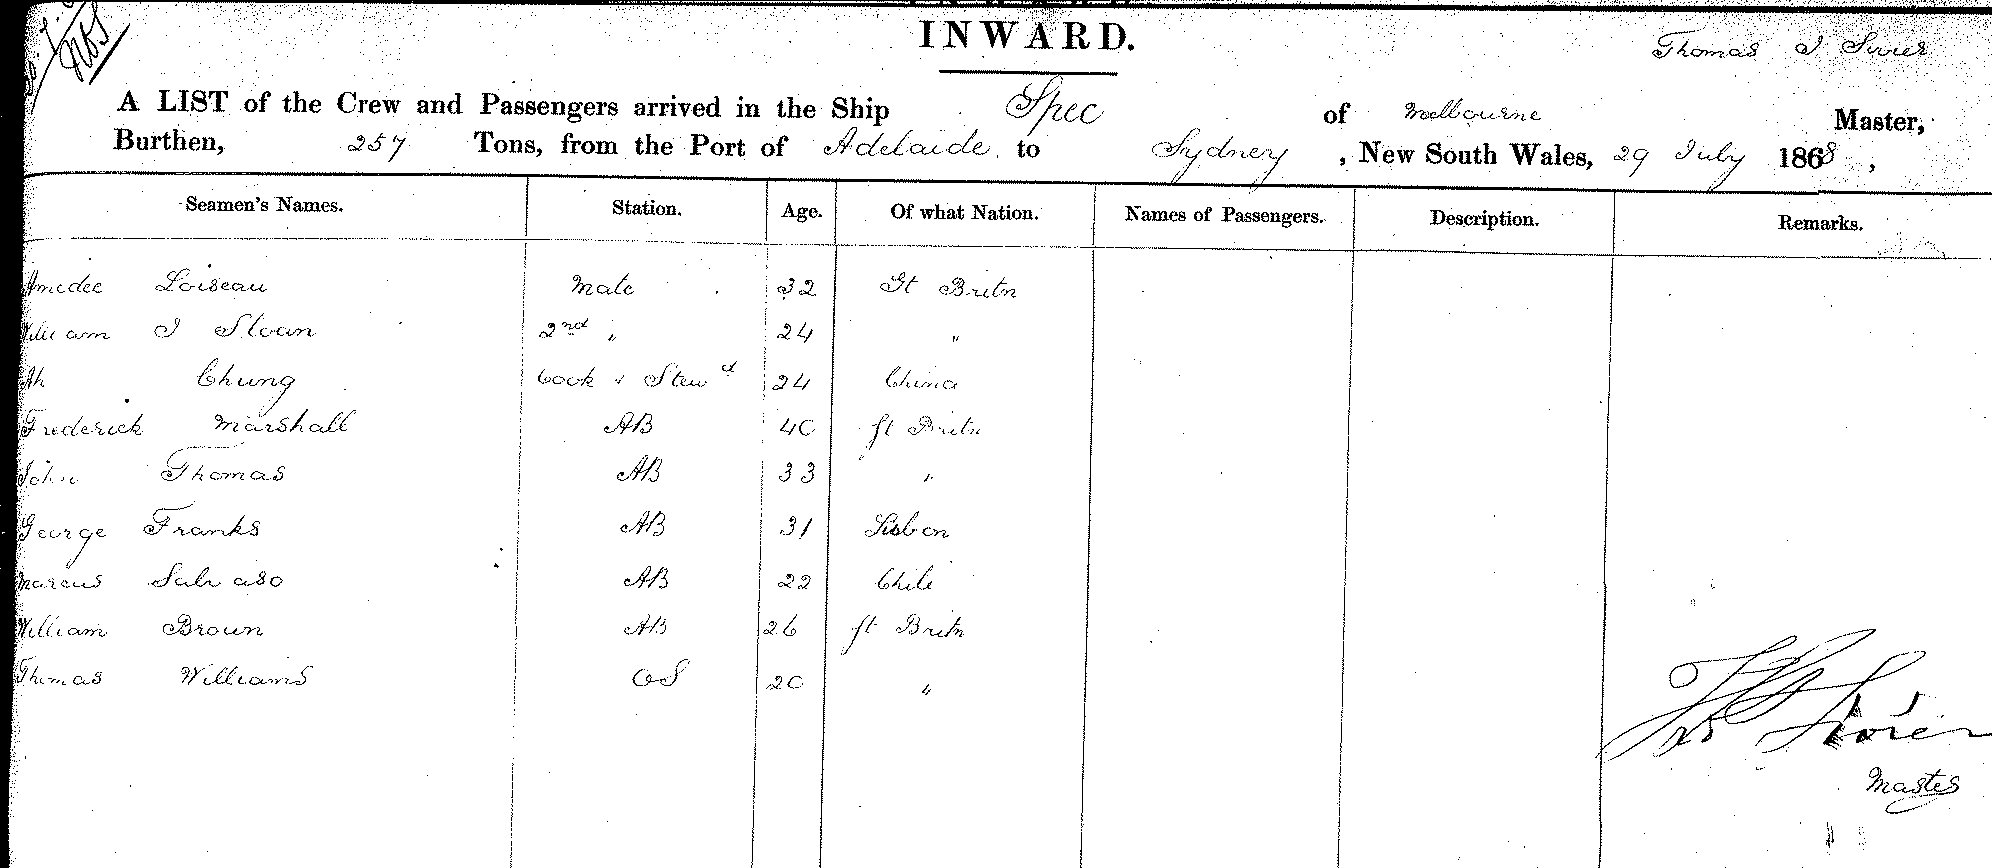 INWARD.
Thomas J
A LIST of the Crew and Passengers arrived in the Ship Spec of Melbourne Master,
Burthen, 257 Tons, from the Port of Adelaide to Sydney, New South Wales, 29 July 1868,
Seamen's Names. Station. Age. Of what Nation. Names of Passengers. Description. Remarks.
Amedee Loiseau Mate 32 Gt Britn
William J Sloan 2nd " 24 "
Ah Chung Cook & Stewd 24 China
Frederick Marshall AB 40 Gt Britn
John Thomas AB 33 "
George Franks AB 31 Lisbon
Marcus AB 22 Chili
William Brown AB 26 Gt Britn
Thomas Williams OS 20 "
Master